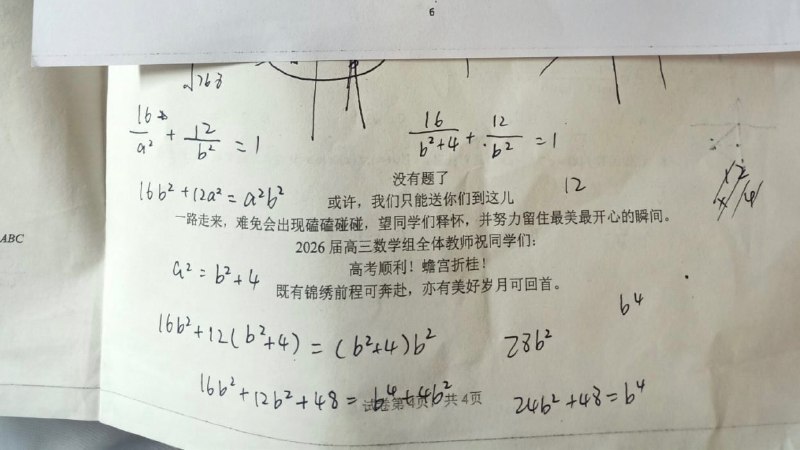 6
16/a² + 12/b² = 1
16/(b²+4) + 12/b² = 1
没有题了
16b²+12a²=a²b²
12
或许，我们只能送你们到这儿
一路走来，难免会出现磕磕碰碰，望同学们释怀，并努力留住最美最开心的瞬间。
ABC
2026 届高三数学组全体教师祝同学们：
a²=b²+4
高考顺利！蟾宫折桂！
既有锦绣前程可奔赴，亦有美好岁月可回首。
b⁴
16b²+12(b²+4)=(b²+4)b²
28b²
16b²+12b²+48=b⁴+4b²
试卷第4页，共4页
24b²+48=b⁴